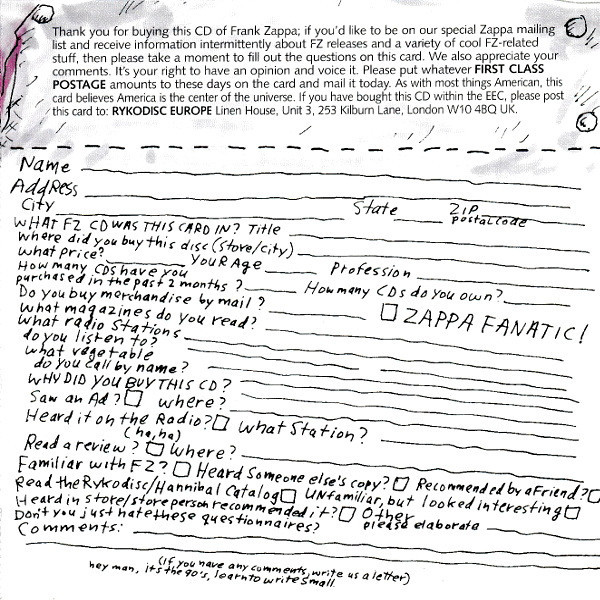 Thank you for buying this CD of Frank Zappa; if you'd like to be on our special Zappa mailing
list and receive information intermittently about FZ releases and a variety of cool FZ-related
stuff, then please take a moment to fill out the questions on this card. We also appreciate your
comments. It's your right to have an opinion and voice it. Please put whatever FIRST CLASS
POSTAGE amounts to these days on the card and mail it today. As with most things American, this
card believes America is the center of the universe. If you have bought this CD within the EEC, please post
this card to: RYKODISC EUROPE Linen House, Unit 3, 253 Kilburn Lane, London W10 4BQ UK.
Name
Address
City State ZIP
postal code
WHAT FZ CD WAS THIS CARD IN? Title
Where did you buy this disc (store/city)
What price? YOUR Age Profession
How many CDs have you
purchased in the past 2 months? How many CDs do you own?
Do you buy merchandise by mail?
What magazines do you read? ZAPPA FANATIC!
What radio Stations
do you listen to?
What vegetable
do you call by name?
WHY DID YOU BUY THIS CD?
Saw an Ad? Where?
Heard it on the Radio? What Station?
(ha, ha)
Read a review? Where?
Familiar with FZ? Heard Someone else's copy? Recommended by a Friend?
Read the Rykodisc/Hannibal Catalog UNfamiliar, but looked interesting
Heard in store/store person recommended it? Other
Don't you just hate these questionnaires? please elaborate
Comments:
(If you have any comments, write us a letter)
hey man, it's the 90's, learn to write small